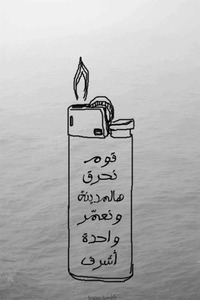 قوم
نحرق
هالمدينة
ونعمّر
واحدة
أشرف